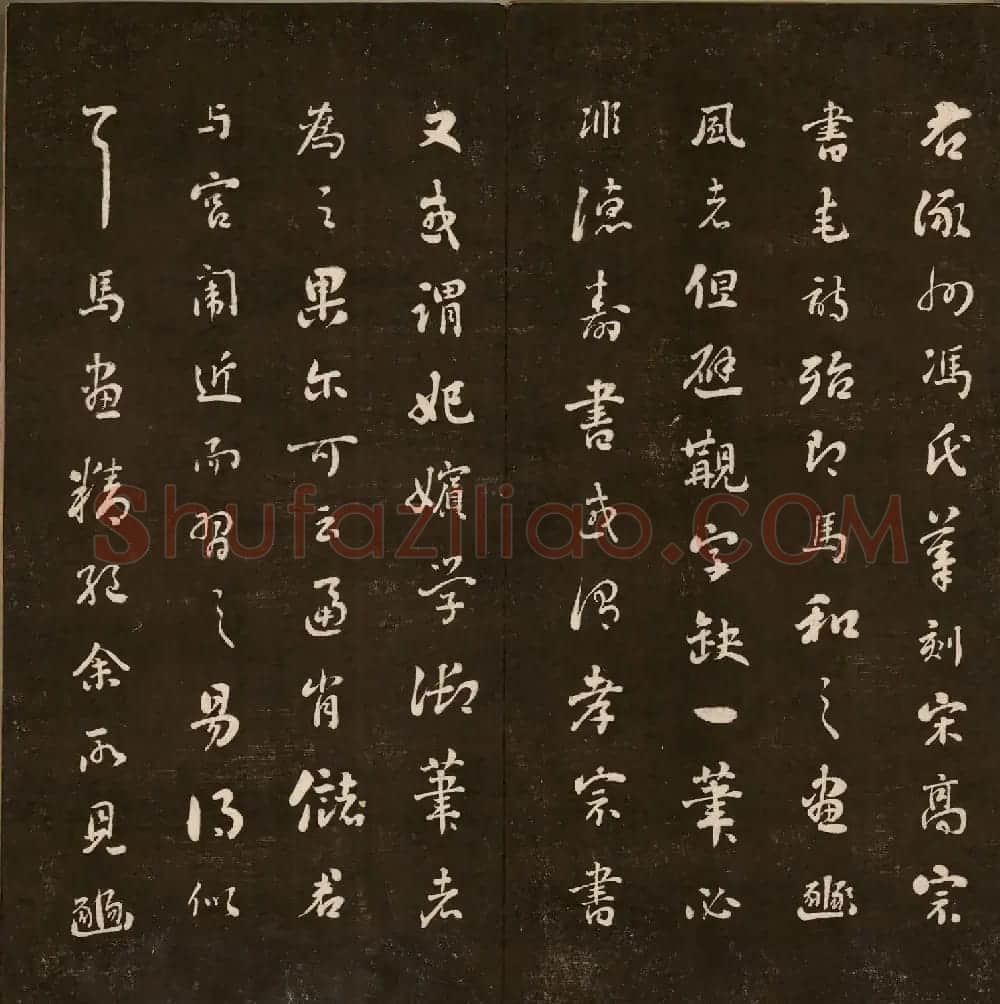 右涿州馮氏摹刻宋高宗
書毛詩殆即馬和之畫豳
風者但避觀字缺一筆必
非德壽書或謂孝宗書
又或謂妃嬪學御筆者
為之果尔可云逼肖儲君
与宮闈近而習之易得似
耳馬畫精絕余所見豳
Shufaziliao.COM